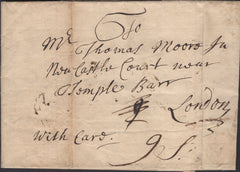 To
Mr Thomas Moore In
New Castle Court near
Temple Barr
London
With Care.